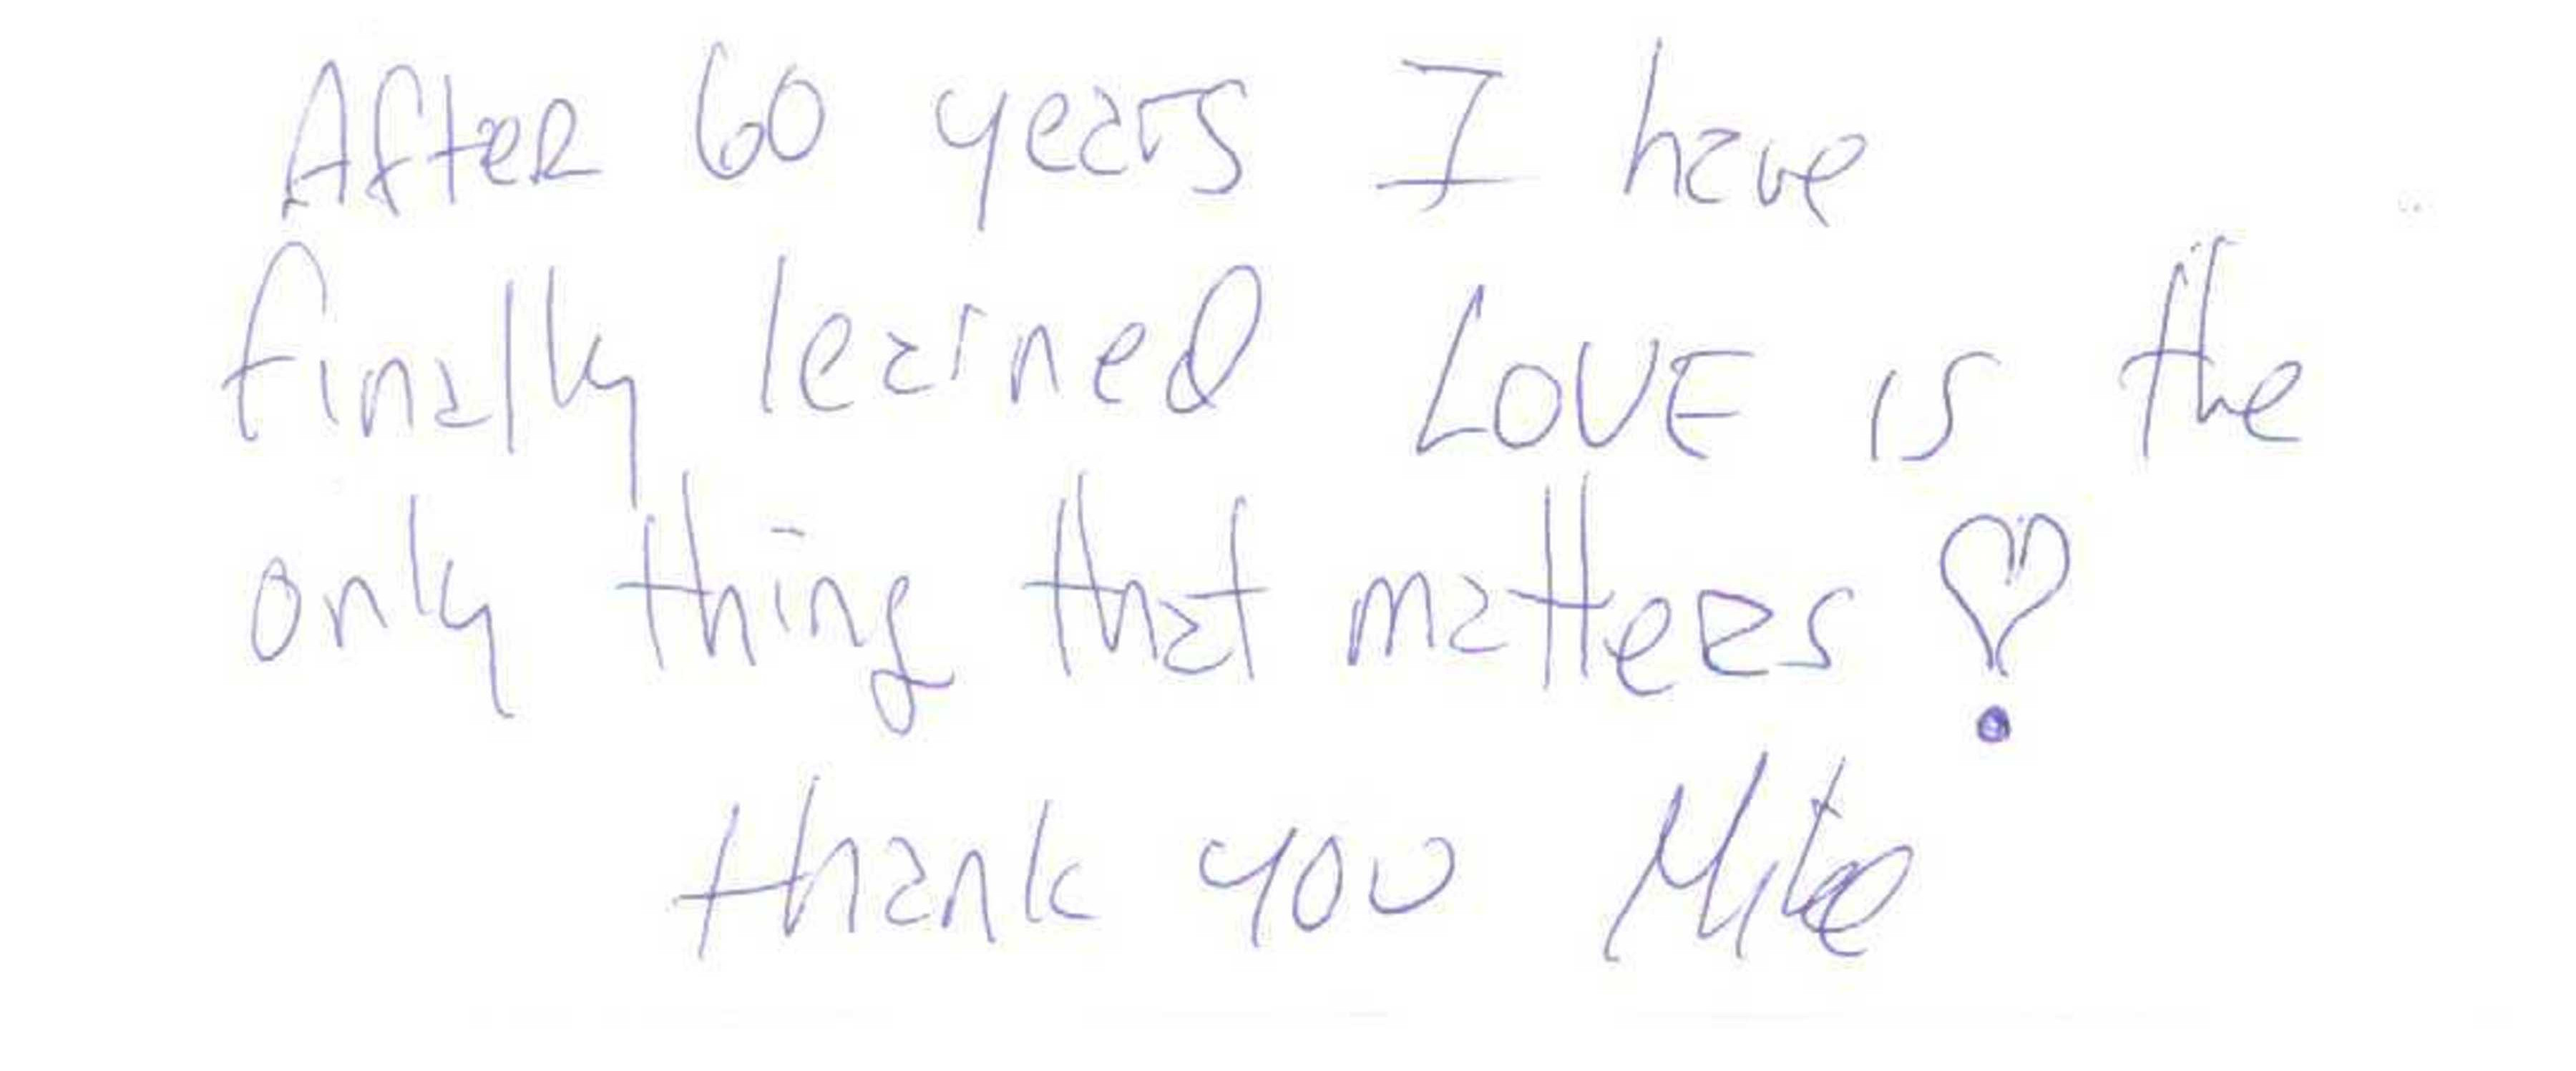 After 60 years I have
finally learned LOVE is the
only thing that matters
thank you Mike